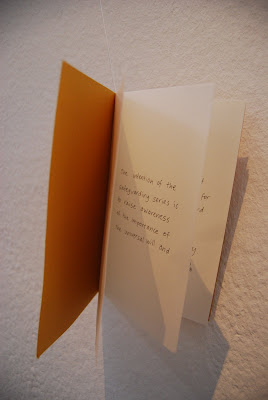 The intention of the
safeguarding series is
to raise awareness
of the importance of
the universal will and
for